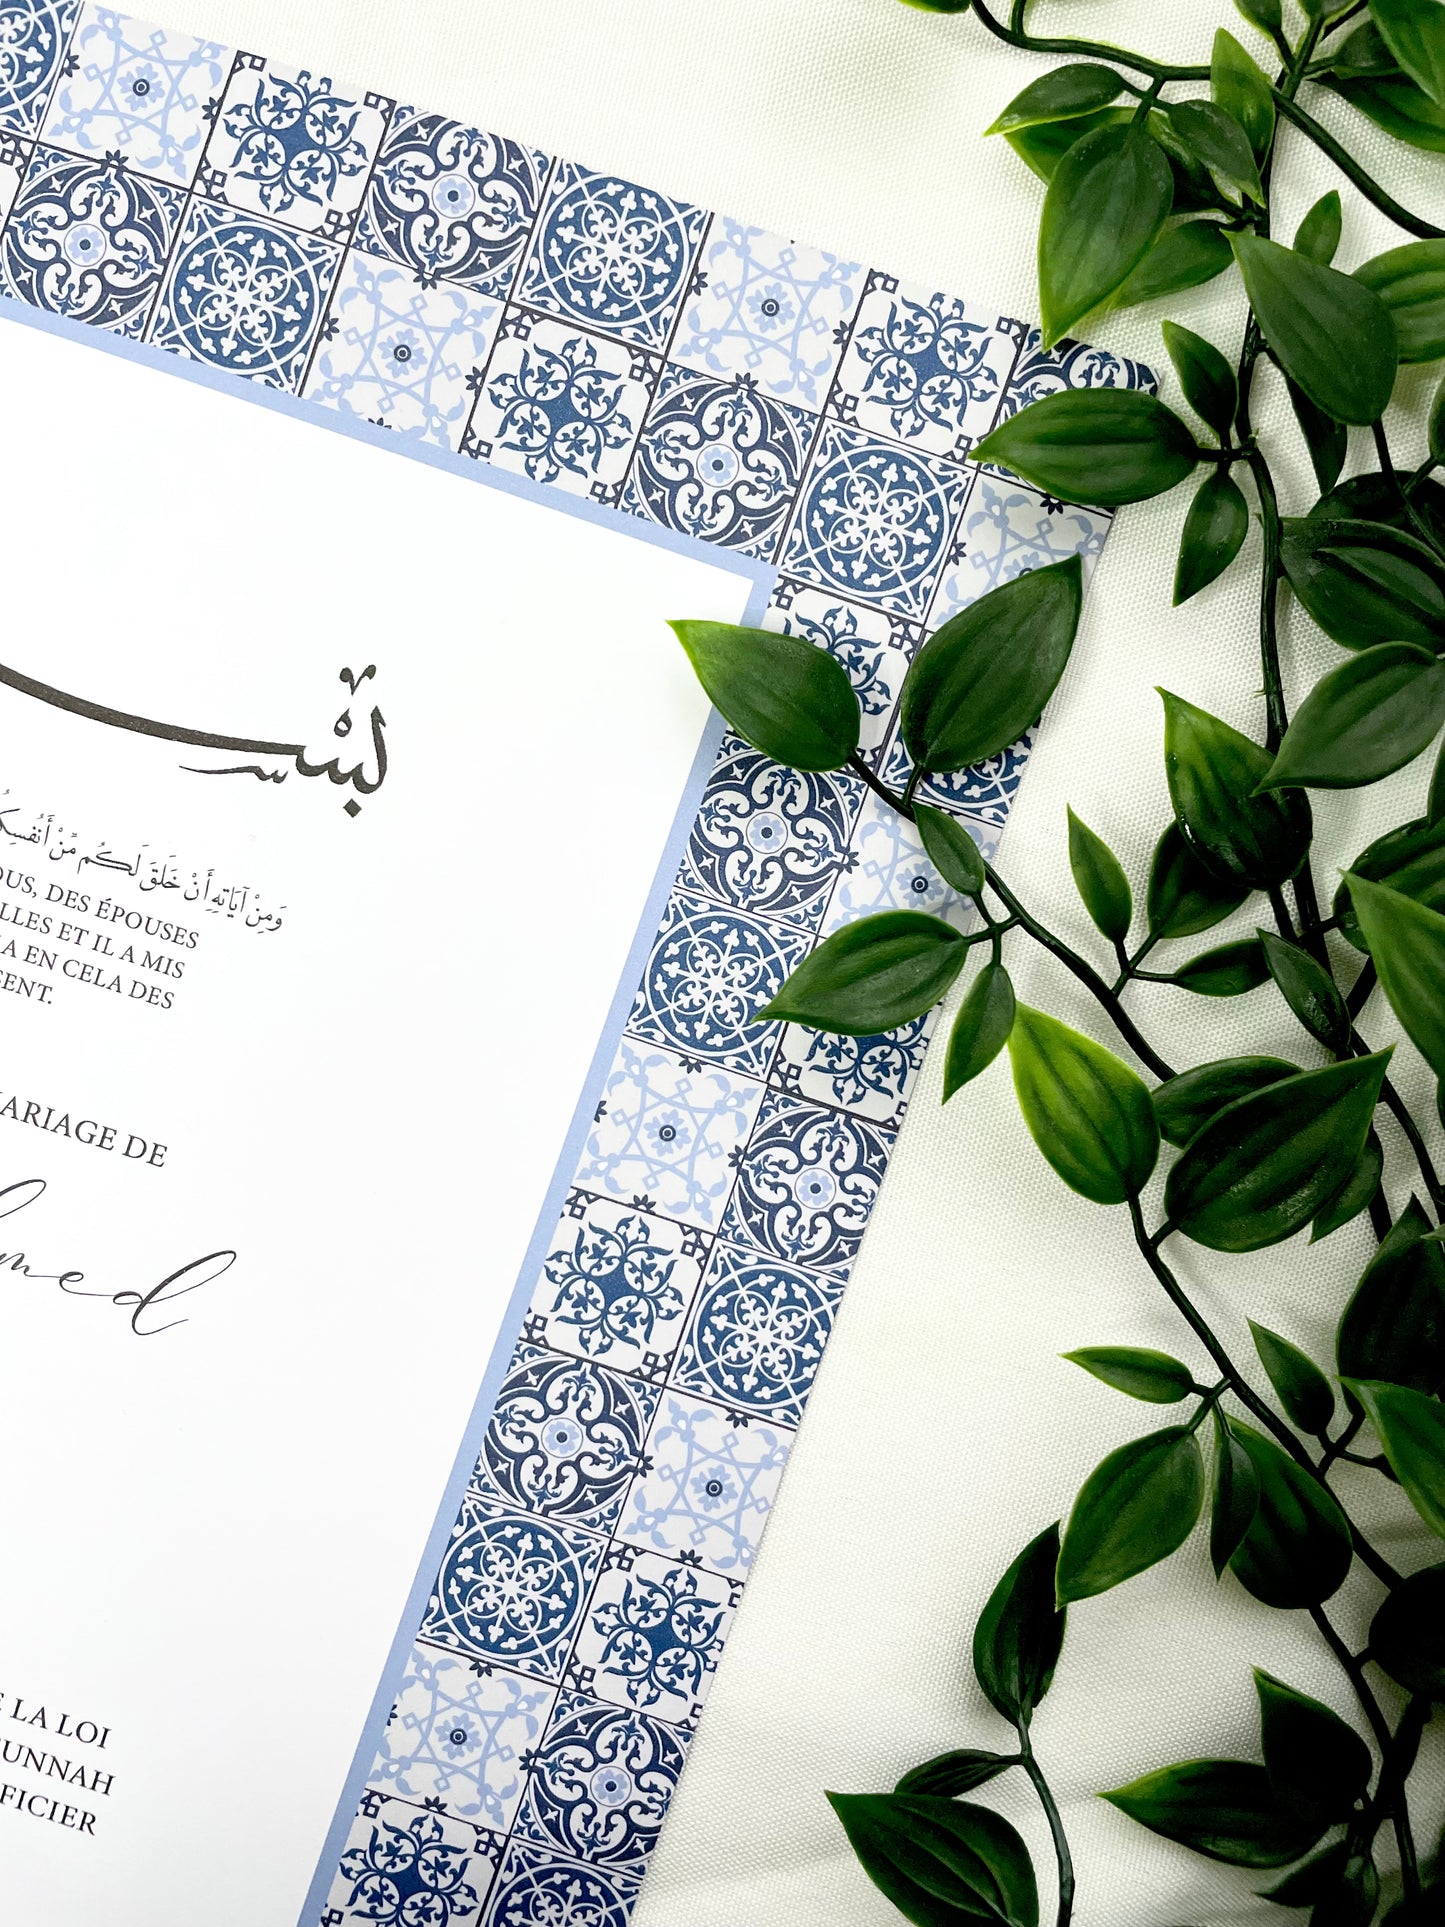 بسـ
وَمِنْ آيَاتِهِ أَنْ خَلَقَ لَكُم مِّنْ أَنفُسِكُ
OUS, DES ÉPOUSES
LLES ET IL A MIS
A EN CELA DES
SENT.
MARIAGE DE
hmed
E LA LOI
SUNNAH
FICIER